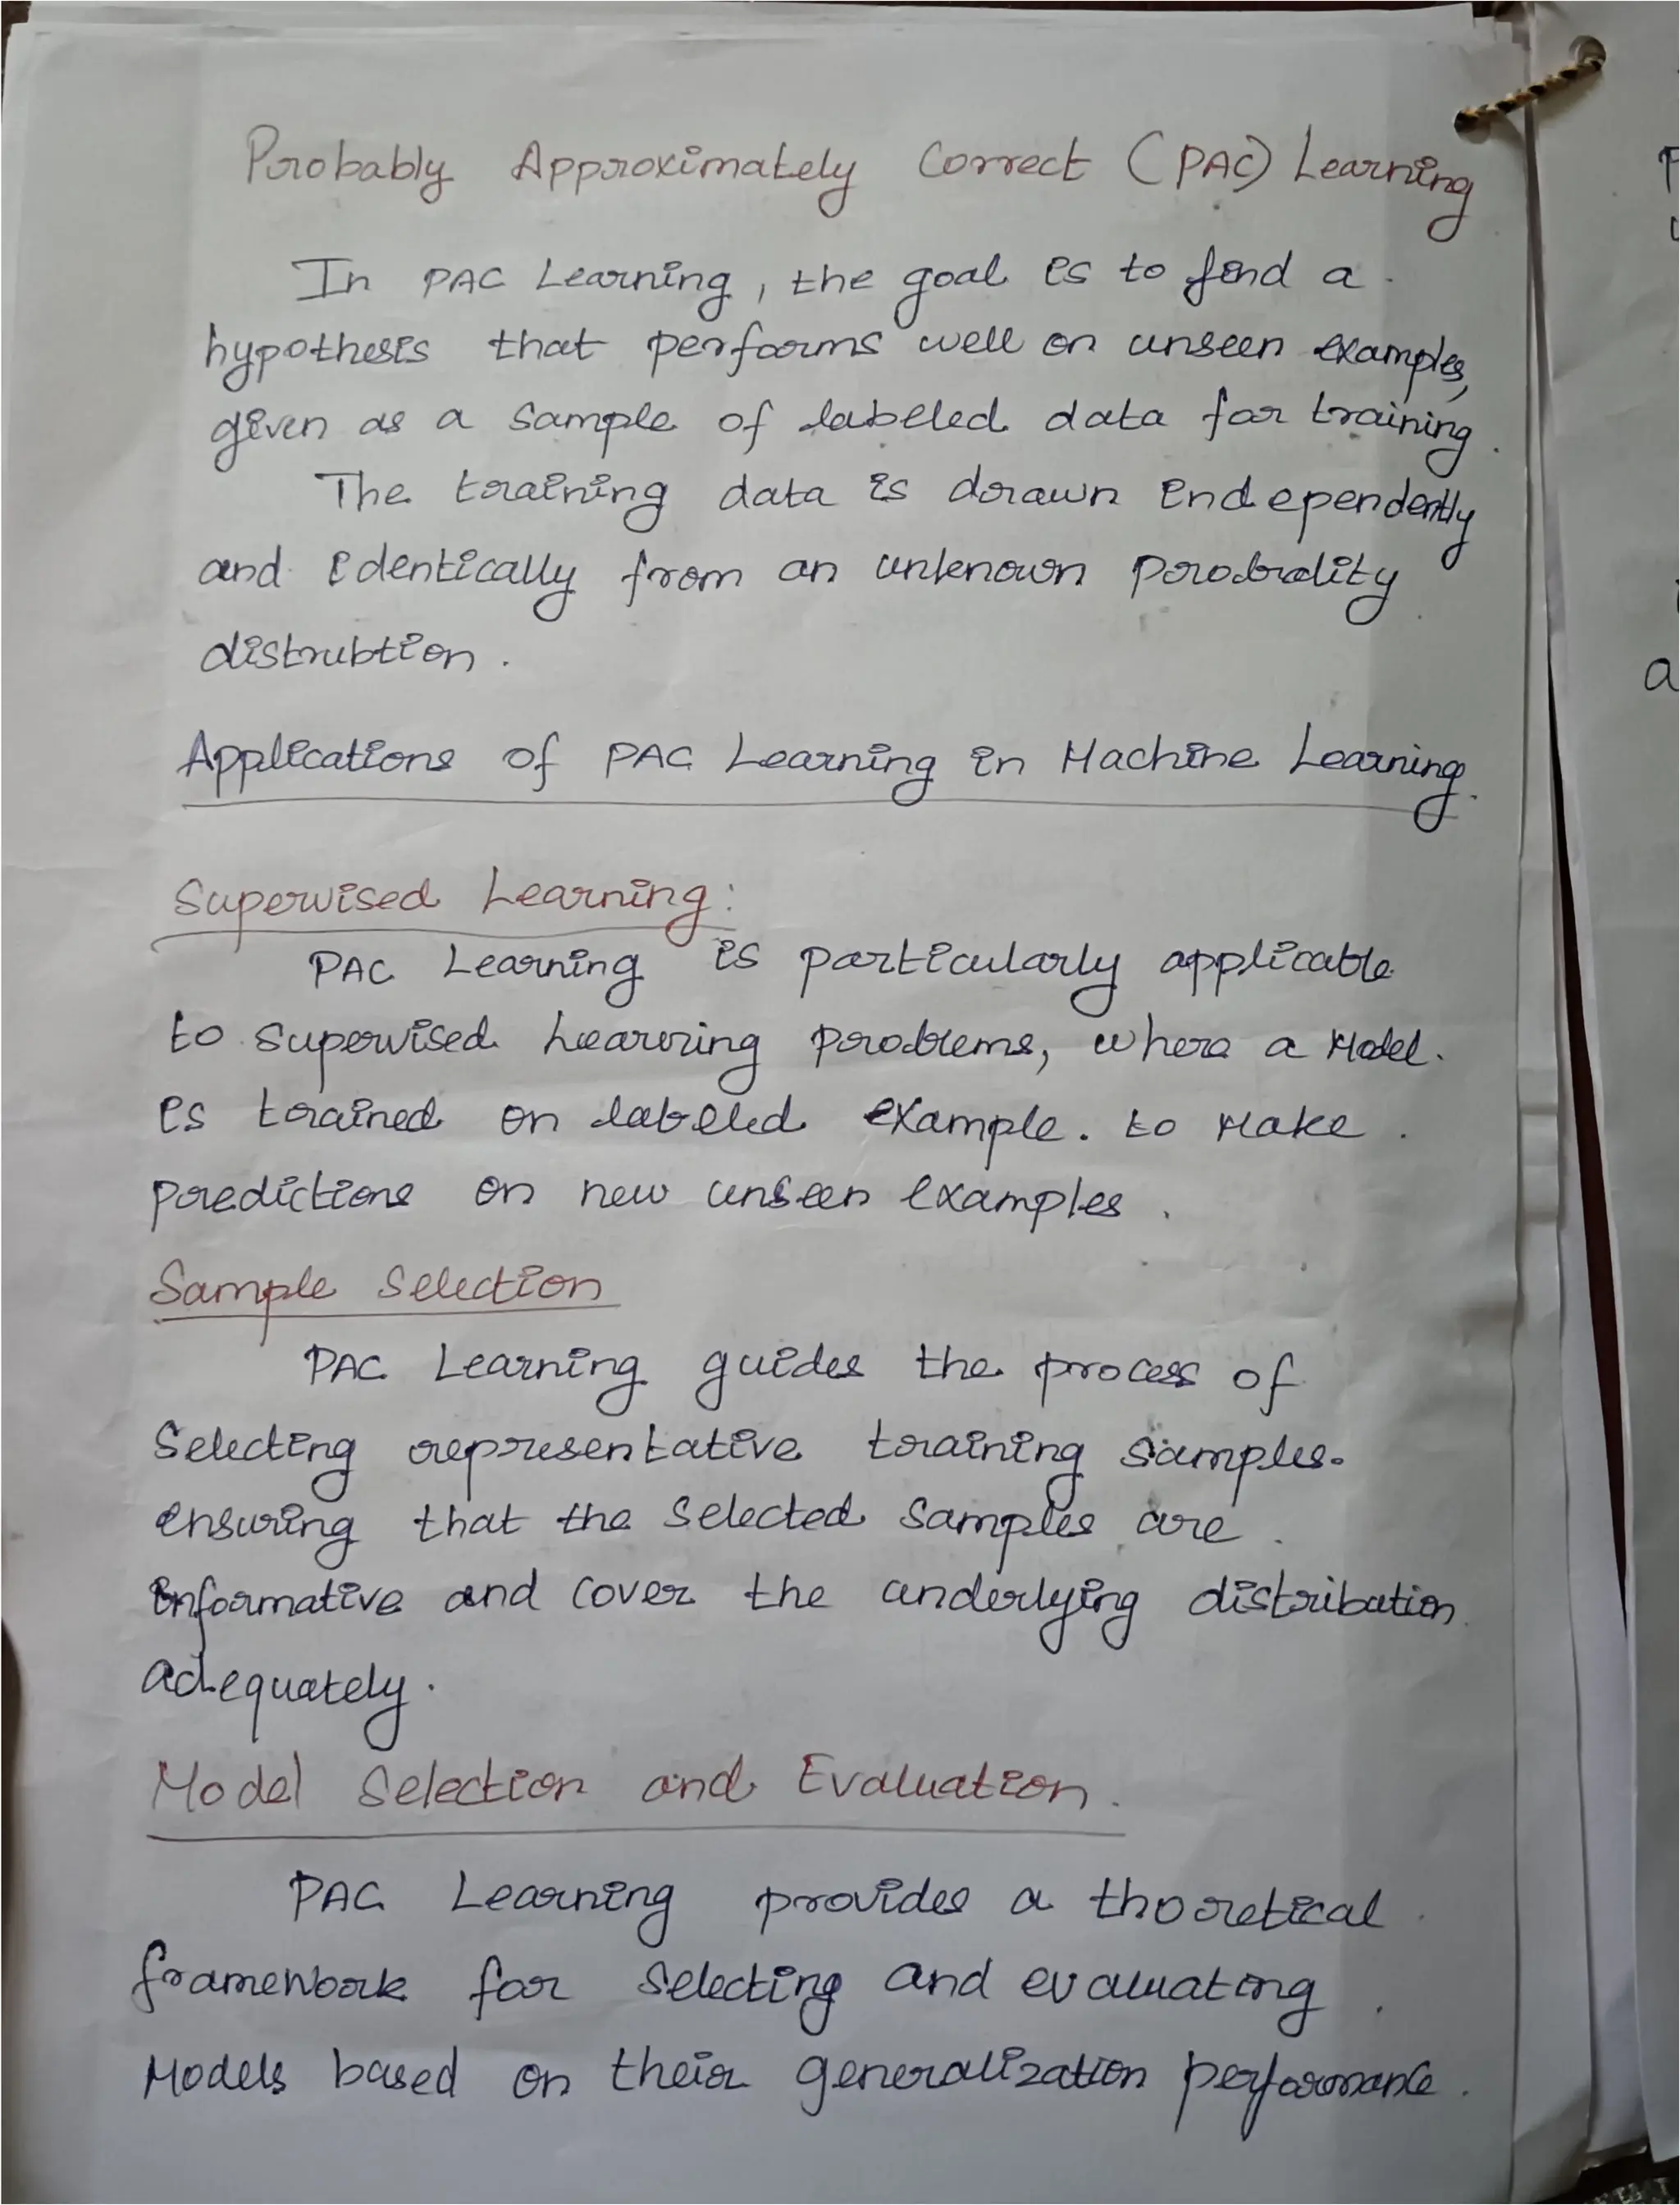 Probably Approximately Correct (PAC) Learning
In PAC Learning, the goal is to find a
hypothesis that performs well on unseen examples,
given as a sample of labeled data for training.
The training data is drawn independently
and identically from an unknown probality
distrubtion.
Applications of PAC Learning in Machine Learning.
Supervised Learning:
PAC Learning is particularly applicable
to supervised Learning problems, where a Model
is trained on labeled example. to Make
predictions on new unseen examples.
Sample Selection
PAC Learning guides the process of
Selecting representative training samples.
ensuring that the Selected Samples are
informative and cover the underlying distribution
adequately.
Model Selection and Evaluation.
PAC Learning provides a thooretical
framework for Selecting and evaluating
Models based on their generalization performance.